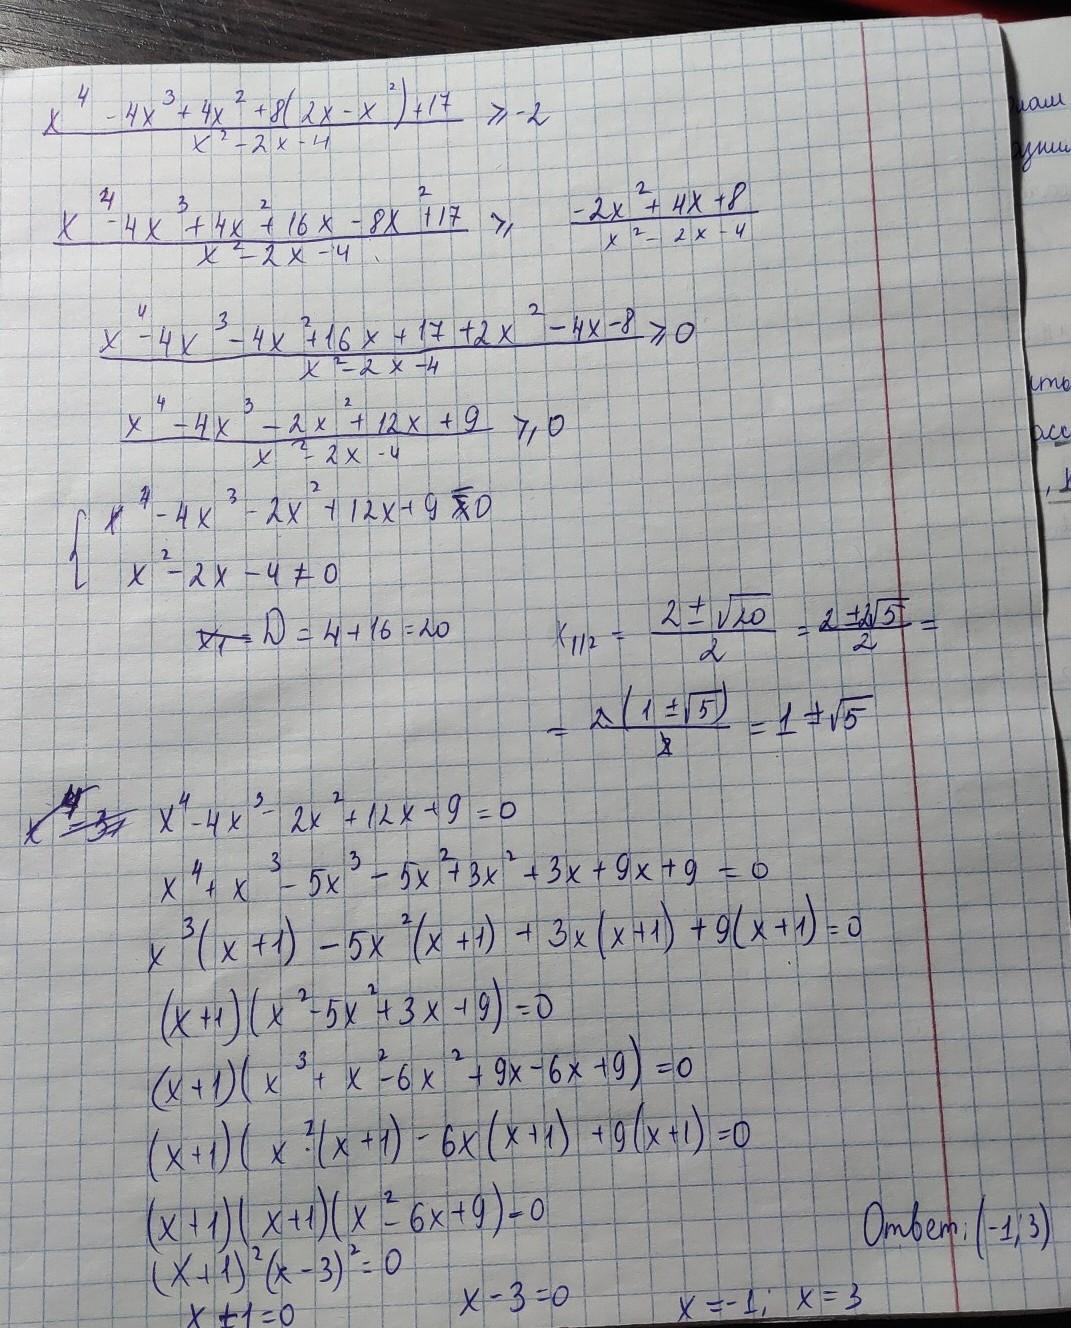 x⁴ - 4x³ + 4x² + 8(2x - x²) + 17 / x² - 2x - 4 ⩾ -2
x⁴ - 4x³ + 4x² + 16x - 8x² + 17 / x² - 2x - 4 ⩾ -2x² + 4x + 8 / x² - 2x - 4
x⁴ - 4x³ - 4x² + 16x + 17 + 2x² - 4x - 8 / x² - 2x - 4 ⩾ 0
x⁴ - 4x³ - 2x² + 12x + 9 / x² - 2x - 4 ⩾ 0
{ x⁴ - 4x³ - 2x² + 12x + 9 = 0
x² - 2x - 4 ≠ 0
D = 4 + 16 = 20 x₁/₂ = 2 ± √20 / 2 = 2 ± 2√5 / 2 =
= 2(1 ± √5) / 2 = 1 ± √5
x⁴ - 4x³ - 2x² + 12x + 9 = 0
x⁴ + x³ - 5x³ - 5x² + 3x² + 3x + 9x + 9 = 0
x³(x + 1) - 5x²(x + 1) + 3x(x + 1) + 9(x + 1) = 0
(x + 1)(x² - 5x² + 3x + 9) = 0
(x + 1)(x³ + x² - 6x² + 9x - 6x + 9) = 0
(x + 1)(x²(x + 1) - 6x(x + 1) + 9(x + 1) = 0
(x + 1)(x + 1)(x² - 6x + 9) = 0
Ответ: (-1; 3)
(x + 1)²(x - 3)² = 0
x + 1 = 0 x - 3 = 0 x = -1; x = 3